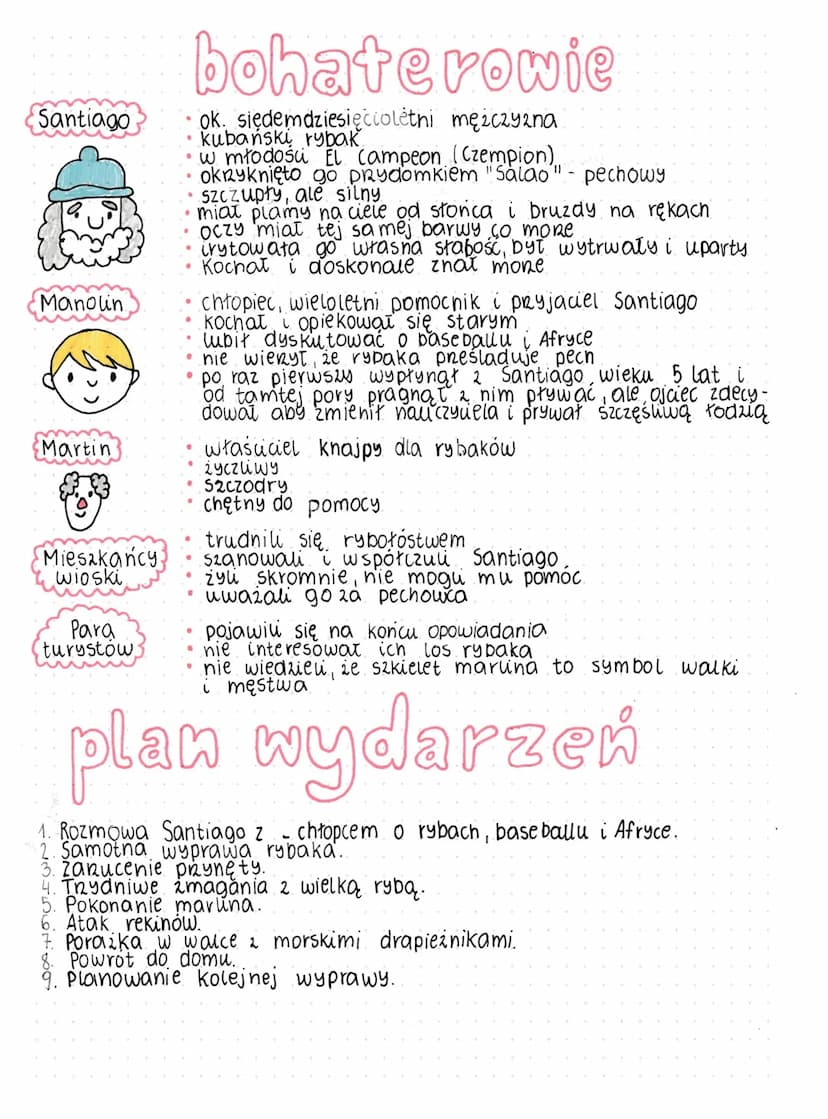 bohaterowie
Santiago
• ok. siędemdziesięcioletni mężczyzna
• kubański rybak
• w młodości El Campeon (Czempion)
• okrzyknięto go przydomkiem "Salao" - pechowy
• szczupły, ale silny
• miał plamy na ciele od słońca i bruzdy na rękach
• oczy miał tej samej barwy co morze
• irytowała go własna słabość, był wytrwały i uparty
• kochał i doskonale znał morze
Manolin
• chłopiec, wieloletni pomocnik i przyjaciel Santiago
• kochał i opiekował się starym
• lubił dyskutować o baseballu i Afryce
• nie wierzył, że rybaka prześladuje pech
• po raz pierwszy wypłynął z Santiago wieku 5 lat i
od tamtej pory pragnął z nim pływać, ale ojciec zdecy-
dował aby zmienił nauczyciela i prywał szczęśliwą łodzią
Martin
• właściciel knajpy dla rybaków
• życzliwy
• szczodry
• chętny do pomocy
Mieszkańcy
wioski
• trudnili się rybołóstwem
• szanowali i współczuli Santiago
• żyli skromnie, nie mogli mu pomóc
• uważali go za pechowca
Para
turystów
• pojawili się na końcu opowiadania
• nie interesował ich los rybaka
• nie wiedzieli, że szkielet marlina to symbol walki
i męstwa
plan wydarzeń
1. Rozmowa Santiago z - chłopcem o rybach, baseballu i Afryce.
2. Samotna wyprawa rybaka.
3. Zarzucenie przynęty.
4. Trzydniwe zmagania z wielką rybą.
5. Pokonanie marlina.
6. Atak rekinów.
7. Porażka w walce z morskimi drapieżnikami.
8. Powrót do domu.
9. Planowanie kolejnej wyprawy.